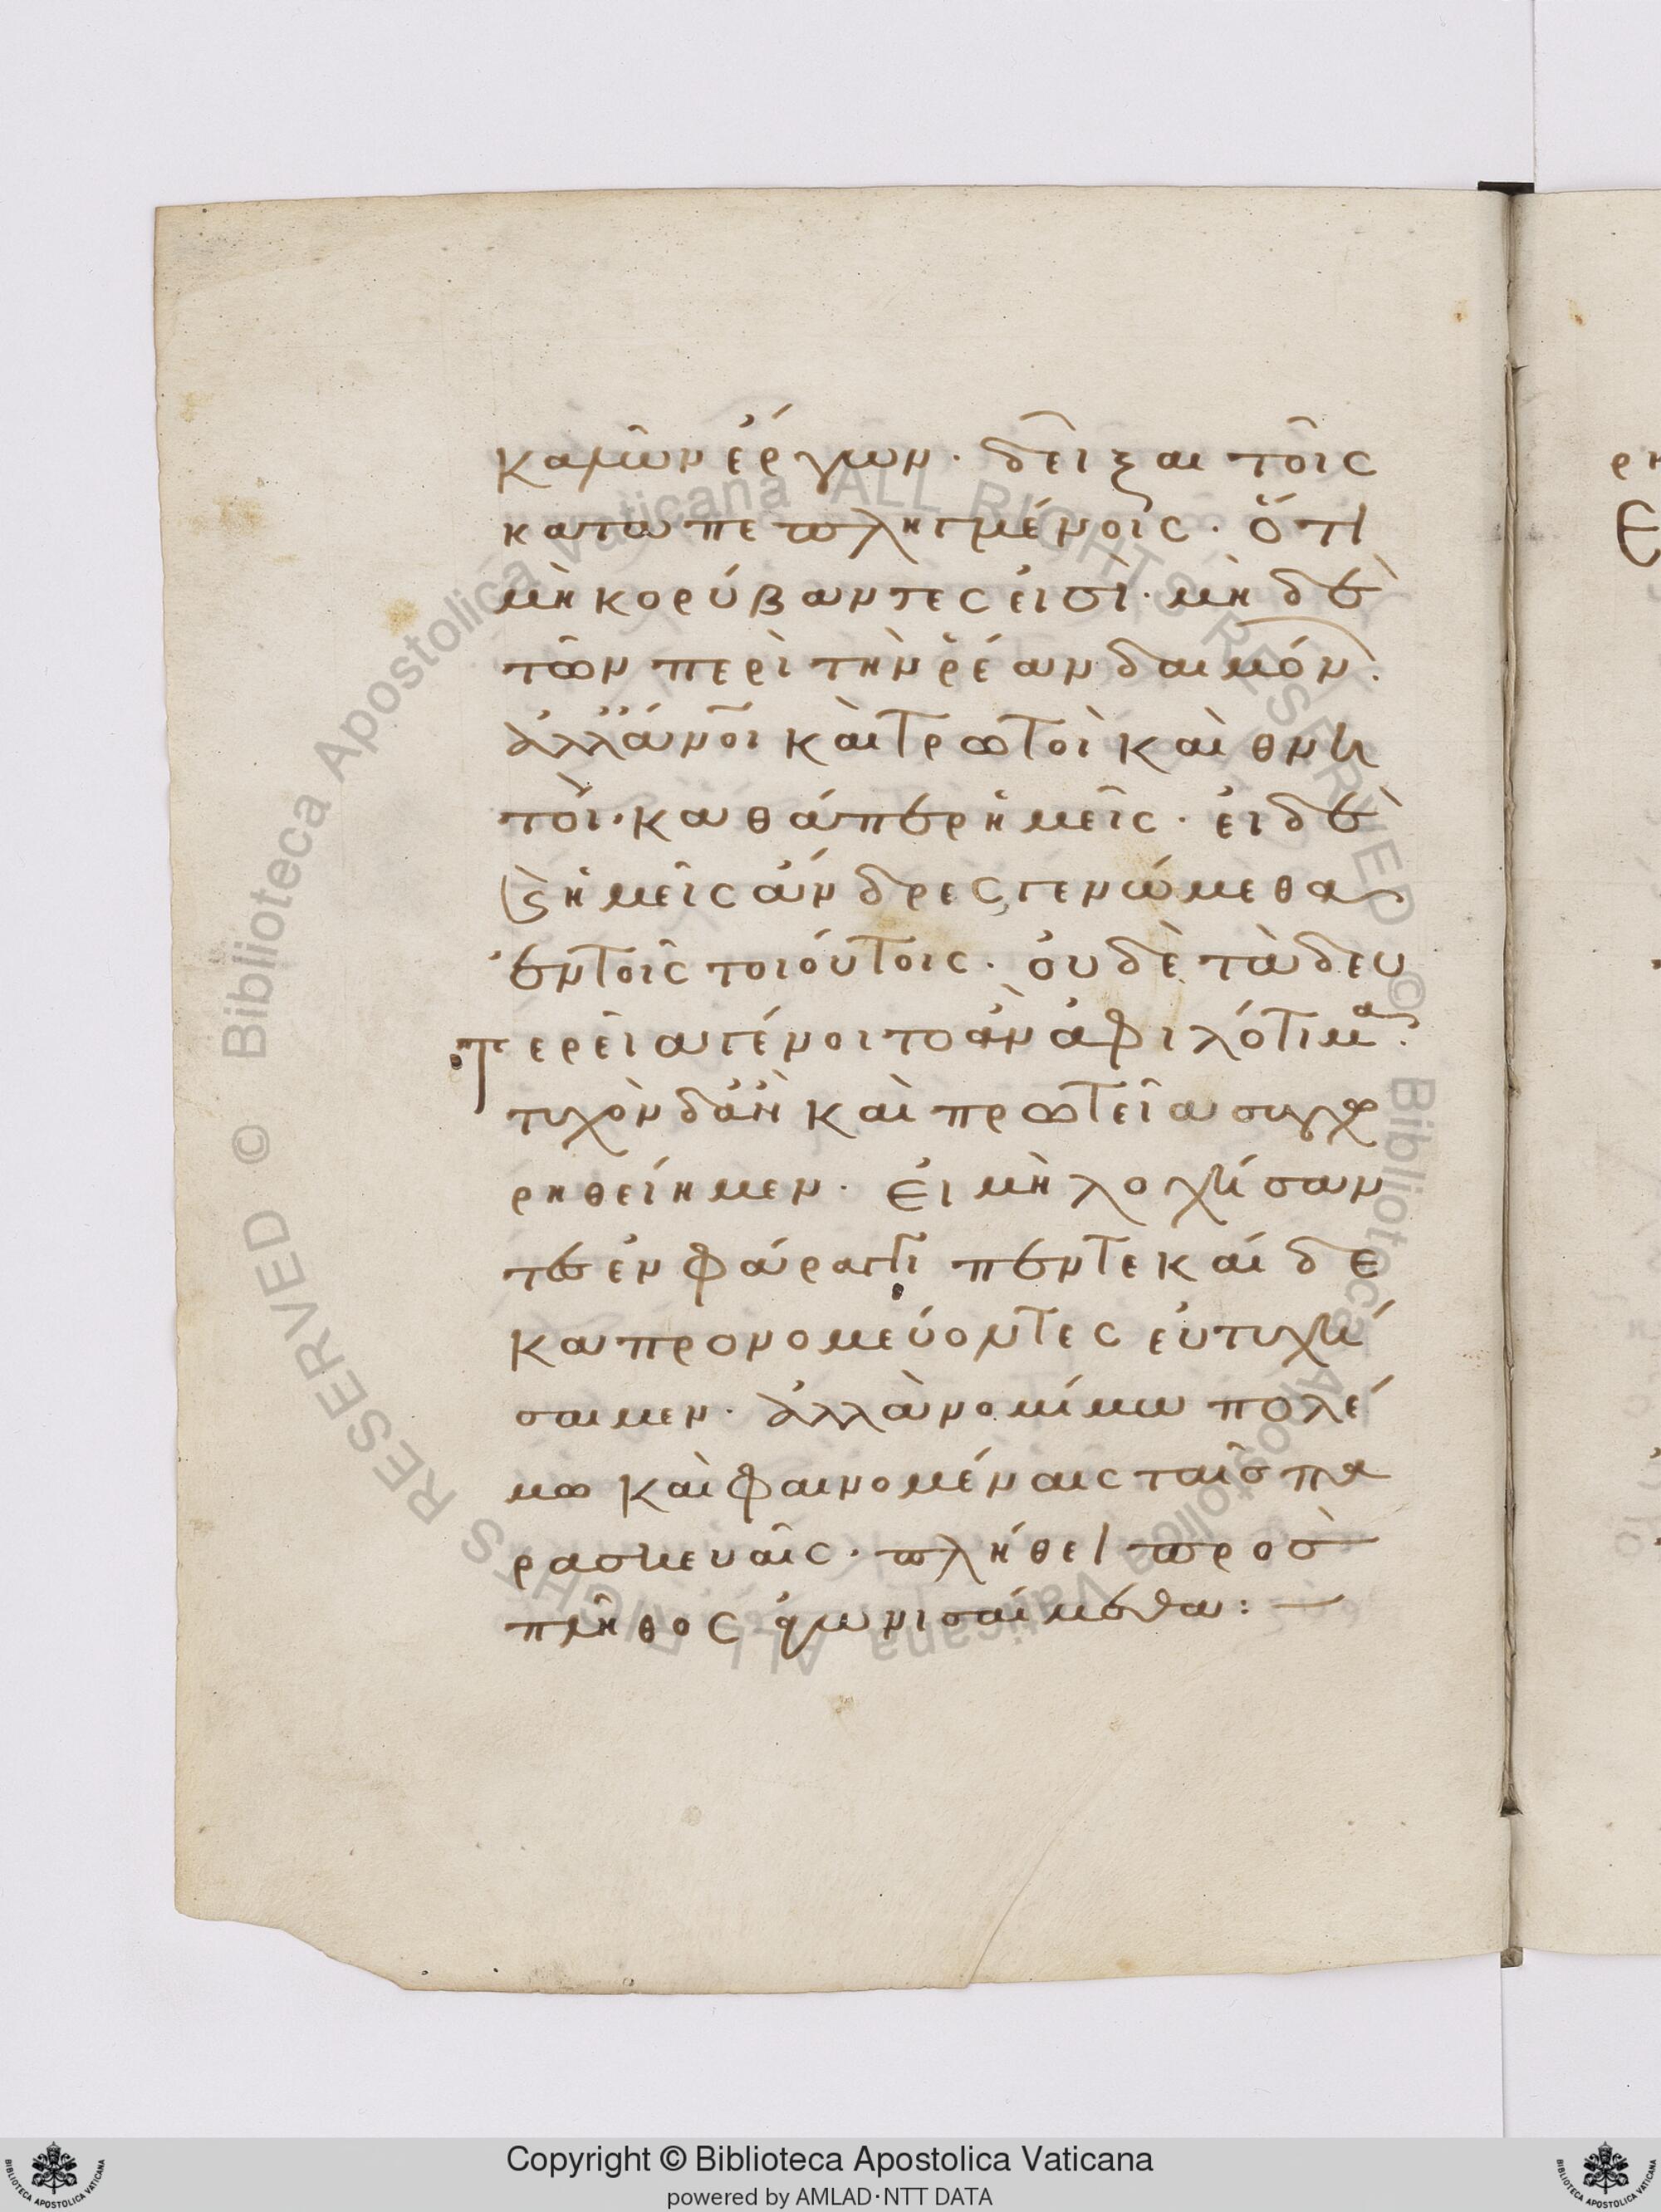 καλῶν ἔργων. δεῖξαι τοῖς
καταπεπληγμένοις. ὅτι
μὴ κορύβαντες εἰσὶ. μὴ δὲ
τῶν περὶ τὴν ῥέαν δαιμόν.
ἀλλ' ἄνοι καὶ τρωτοὶ καὶ θνη
τοὶ. καθάπερ ἡμεῖς. εἰ δὲ
καὶ ἡμεῖς ἄνδρες γενώμεθα
ἐν τοῖς τοιούτοις. οὐδὲ τὰ δευ
τερεῖα γένοιτο ἂν ἀφιλότιμα.
τυχὸν δ' ἂν ἢ καὶ πρωτεῖα συγχω
ρηθείημεν. Εἰ μὴ λοχήσαν
τες ἐν φάραγγι πεντεκαίδε
κα προνομεύοντες εὐτυχή
σαιμεν. ἀλλὰ νομίμω πολέ
μω καὶ φαινομέναις ταῖς πα
ρασκευαῖς. πλήθει πρὸσ
πλῆθος ἀγωνισαίμεθα: —
ρη
Ε
Copyright © Biblioteca Apostolica Vaticana
powered by AMLAD·NTT DATA